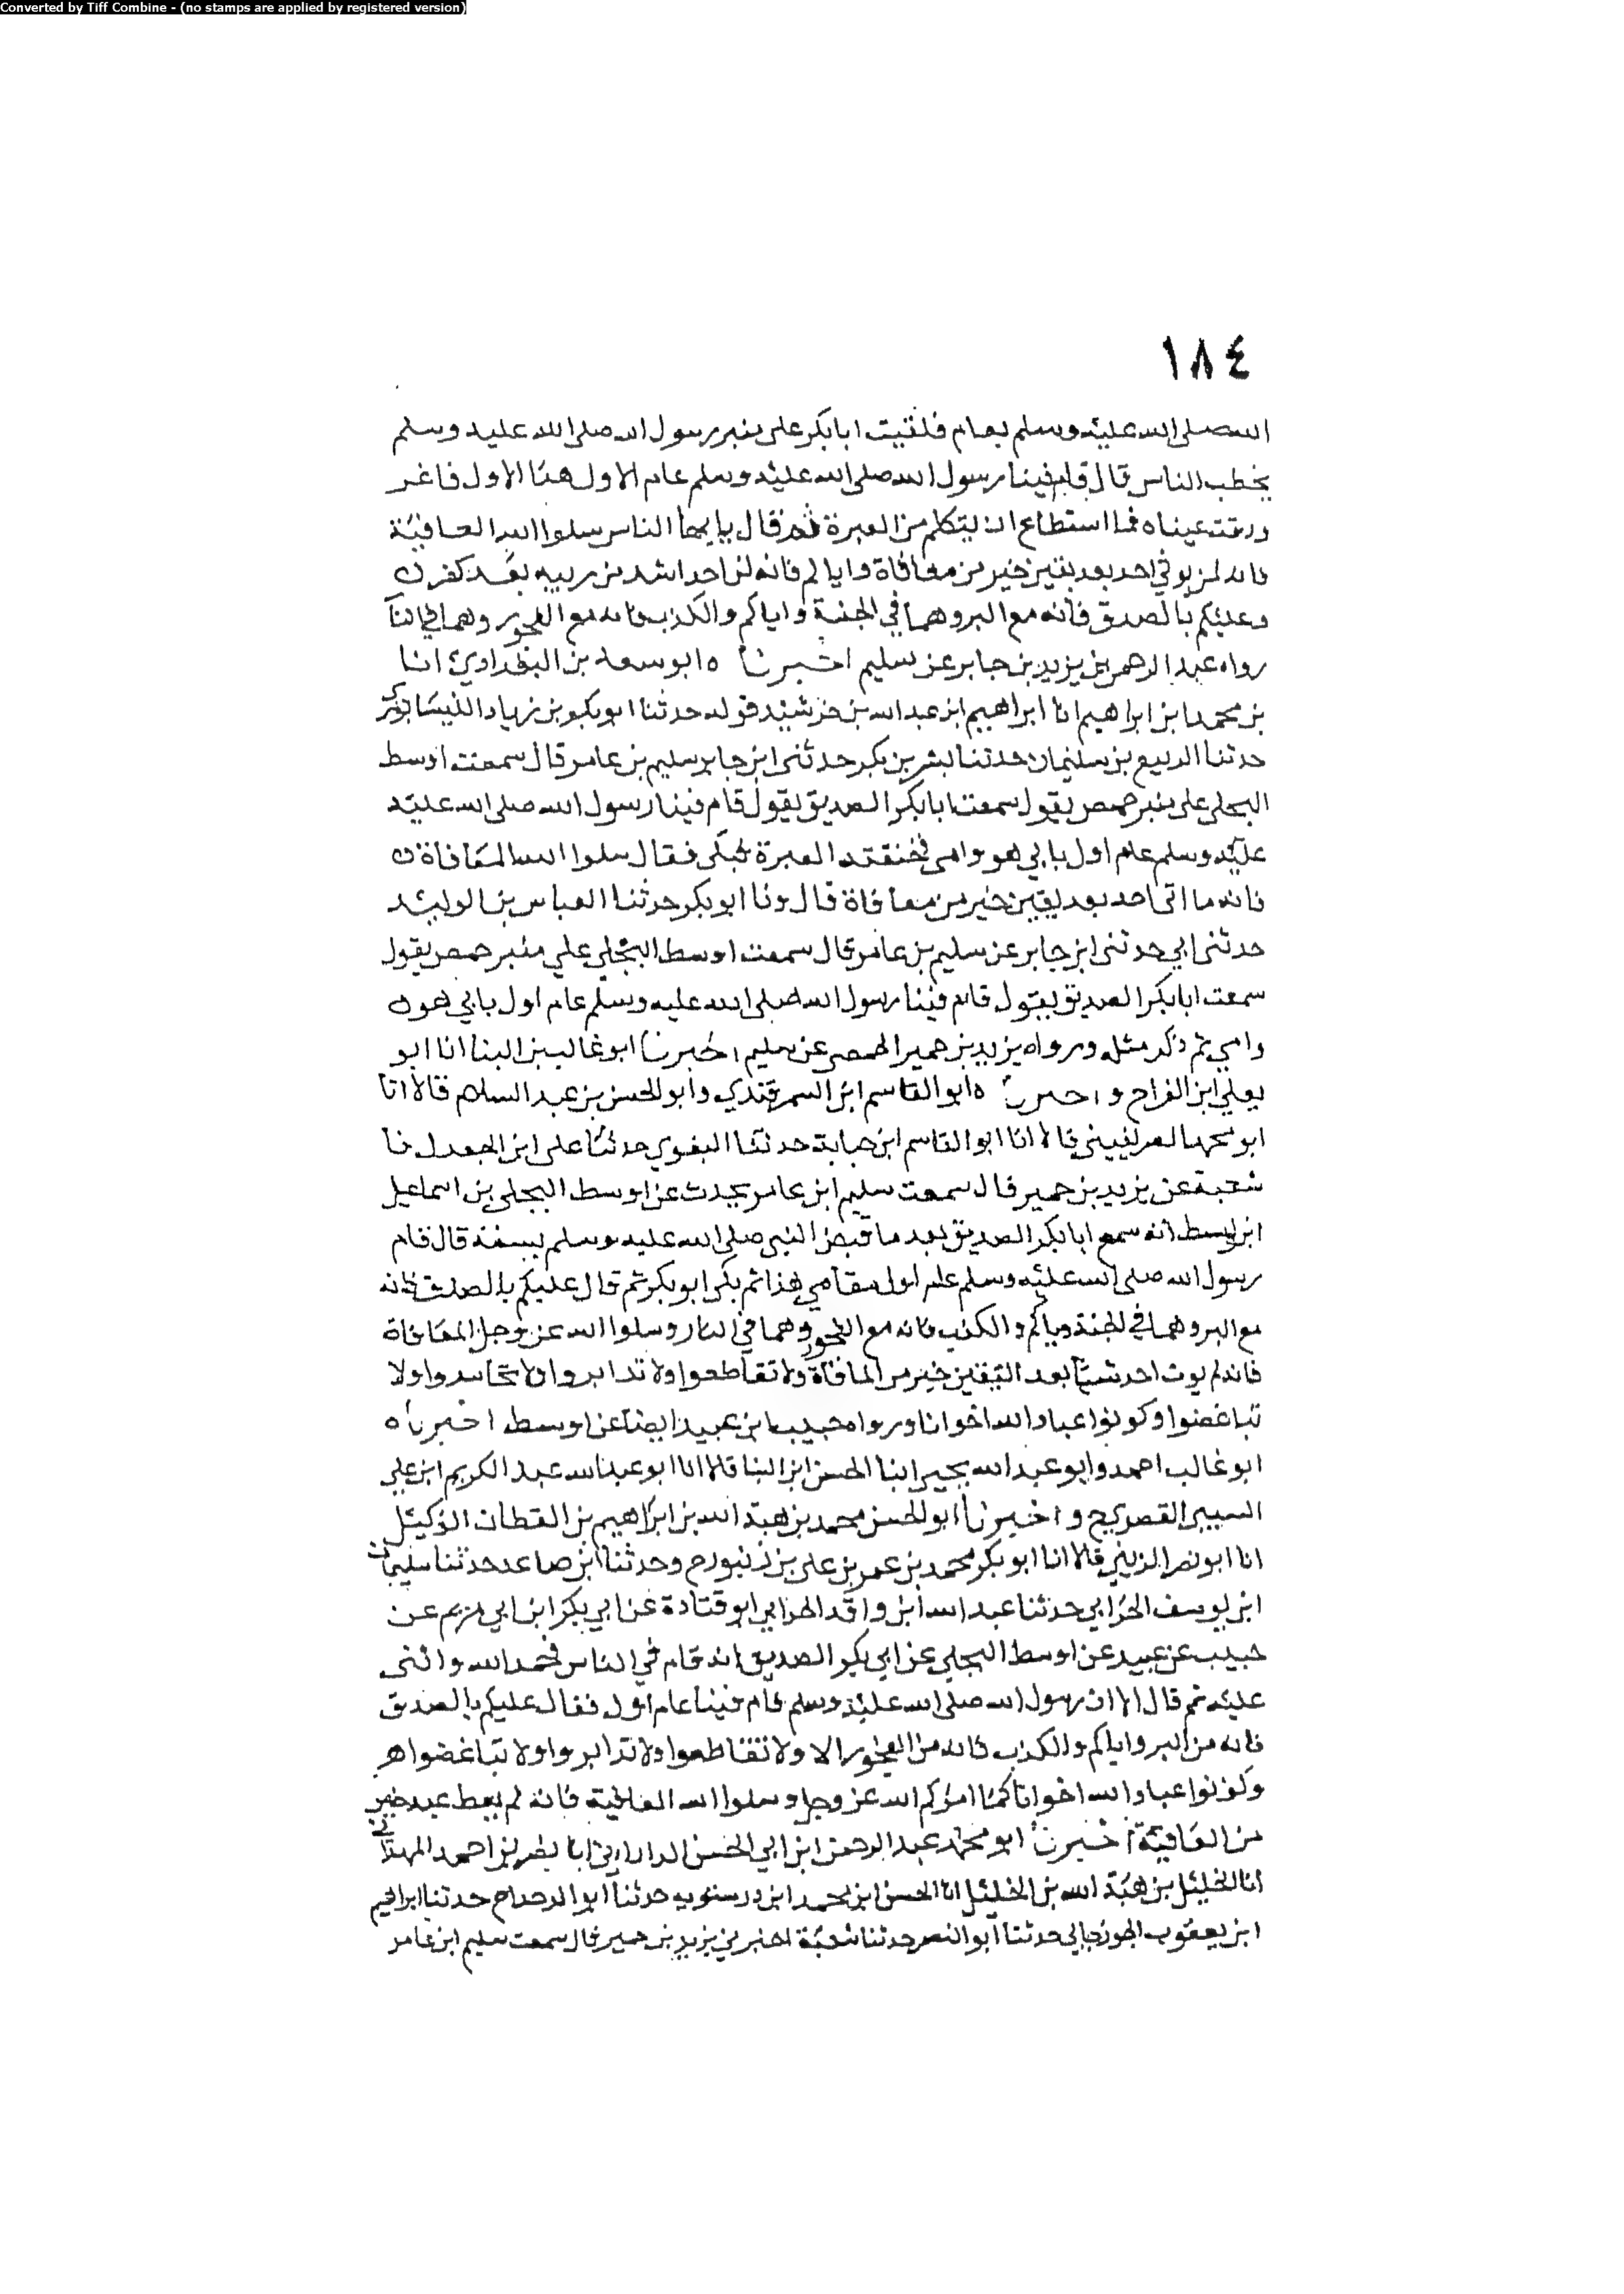 Converted by Tiff Combine - (no stamps are applied by registered version)
١٨٤
الله صلى الله عليه وسلم بعام فلقيت ابا بكر على منبر رسول الله صلى الله عليه وسلم
يخطب الناس قال قام فينا رسول الله صلى الله عليه وسلم عام الاول هذا الاول فاغر
ورقت عيناه فما استطاع ان يتكلم من العبرة ثم قال يا يها الناس سلوا الله العافية
فانه لن يوتي احد بعد يقين خير من معافاة وايا لم فانه لن احد اشد من ريبه بعد كفرن
وعليكم بالصدق فانه مع البر وهما في الجنة واياكم والكذب فانه مع الفجور وهما في النا
رواه عبد الرحمن بن يزيد بن جابر عن سليم اخبرنا ه ابو سعد بن البغدادي انا
بن محمد ابن ابراهيم انا ابراهيم ابن عبد الله بن خرشيد قوله حدثنا ابو بكر بن زياد النيسابوري
حدثنا الربيع بن سليمان حدثنا بشر بن بكر حدثني ابن جابر سليم بن عامر قال سمعت اوسط
البجلي على منبر حمص يقول سمعت ابا بكر الصديق يقول قام فينا رسول الله صلى الله عليه
عليه وسلم عام اول بابي هو وامي فخنقته العبرة فبكى فقال سلوا الله المعافاة ن
فانه ما اتى احد بعد يقين خير من معافاة قال ونا ابو بكر حدثنا العباس بن الوليد
حدثني ابي حدثني ابن جابر عن سليم بن عامر قال سمعت اوسط البجلي علي منبر حمص يقول
سمعت ابا بكر الصديق يقول قام فينا رسول الله صلى الله عليه وسلم عام اول بابي هو ن
وامي ثم ذكر مثله ورواه يزيد بن خمير الحمصي عن سليم اخبرنا ابو غالب بن البنا انا ابو
يعلي ابن الفراح و اخبرنا ه ابو القاسم ابن السمرقندي وابو الحسن بن عبد السلام قالا انا
ابو محمد الصريفيني قالا انا ابو القاسم ابن حبابة حدثنا البغوي حدثنا على ابن الجعد نا
شعبة عن يزيد بن خمير قال سمعت سليم ابن عامر يحدث عن اوسط البجلي بن اسماعيل
ابن اوسط انه سمع ابا بكر الصديق بعد ما قبض النبي صلى الله عليه وسلم بسنة قال قام
رسول الله صلى الله عليه وسلم عام اول مقامي هذا ثم بكر ابو بكر ثم قال عليكم بالصدق فانه
مع البر وهما في الجنة وياكم والكذب فانه مع الفجور وهما في النار وسلوا الله عز وجل المعافاة
فانه لم يوت احد شيا بعد اليقين خير من المافاة ولا تقاطعوا ولا تدابروا ولا تحاسدوا ولا
تباغضوا وكونوا عباد الله اخوانا ورواه حبيب ابن عبيد ايضا عن اوسط اخبرنا ه
ابو غالب احمد وابو عبد الله يحيى ابنا الحسن ابن البنا قالا انا ابو عبد الله عبد الكريم ابن علي
السيبي القصري ح و اخبرنا ابو الحسن محمد بن هبة الله بن ابراهيم بن القطان الوكيل
انا ابو نصر الزينبي قالا انا ابو بكر محمد بن عمر بن علي بن زنبور ح وحدثنا ابن صاعد حدثنا سليمان
ابن يوسف الحراني حدثنا عبد الله ابن واقد الحراني ابو قتادة عن ابي بكر ابن ابي مريم عن
حبيب عن عبيد عن اوسط البجلي عن ابي بكر الصديق انه قام في الناس فحمد الله واثنى
عليه ثم قال الا ان رسول الله صلى الله عليه وسلم قام فينا عام اول فقال عليكم بالصدق
فانه من البر واياكم والكذب فانه من الفجور الا ولا تقاطعوا ولا تدابروا ولا تباغضوا هر
وكونوا عباد الله اخوانا كما امركم الله عز وجل وسلوا الله العافية فانه لم يعط عبد خير
من العافية اخبرنا ابو محمد عبد الرحمن ابن ابي الحسن الداراني انا احمد
انا الخليل بن هبة الله بن الخليل انا الحسن ابن محمد ابن درستويه حدثنا ابو الدحداح حدثنا ابراهيم
ابن يعقوب الجوزجاني حدثنا ابو النصر حدثنا شعبة اخبرني يزيد بن خمير قال سمعت سليم ابن عامر